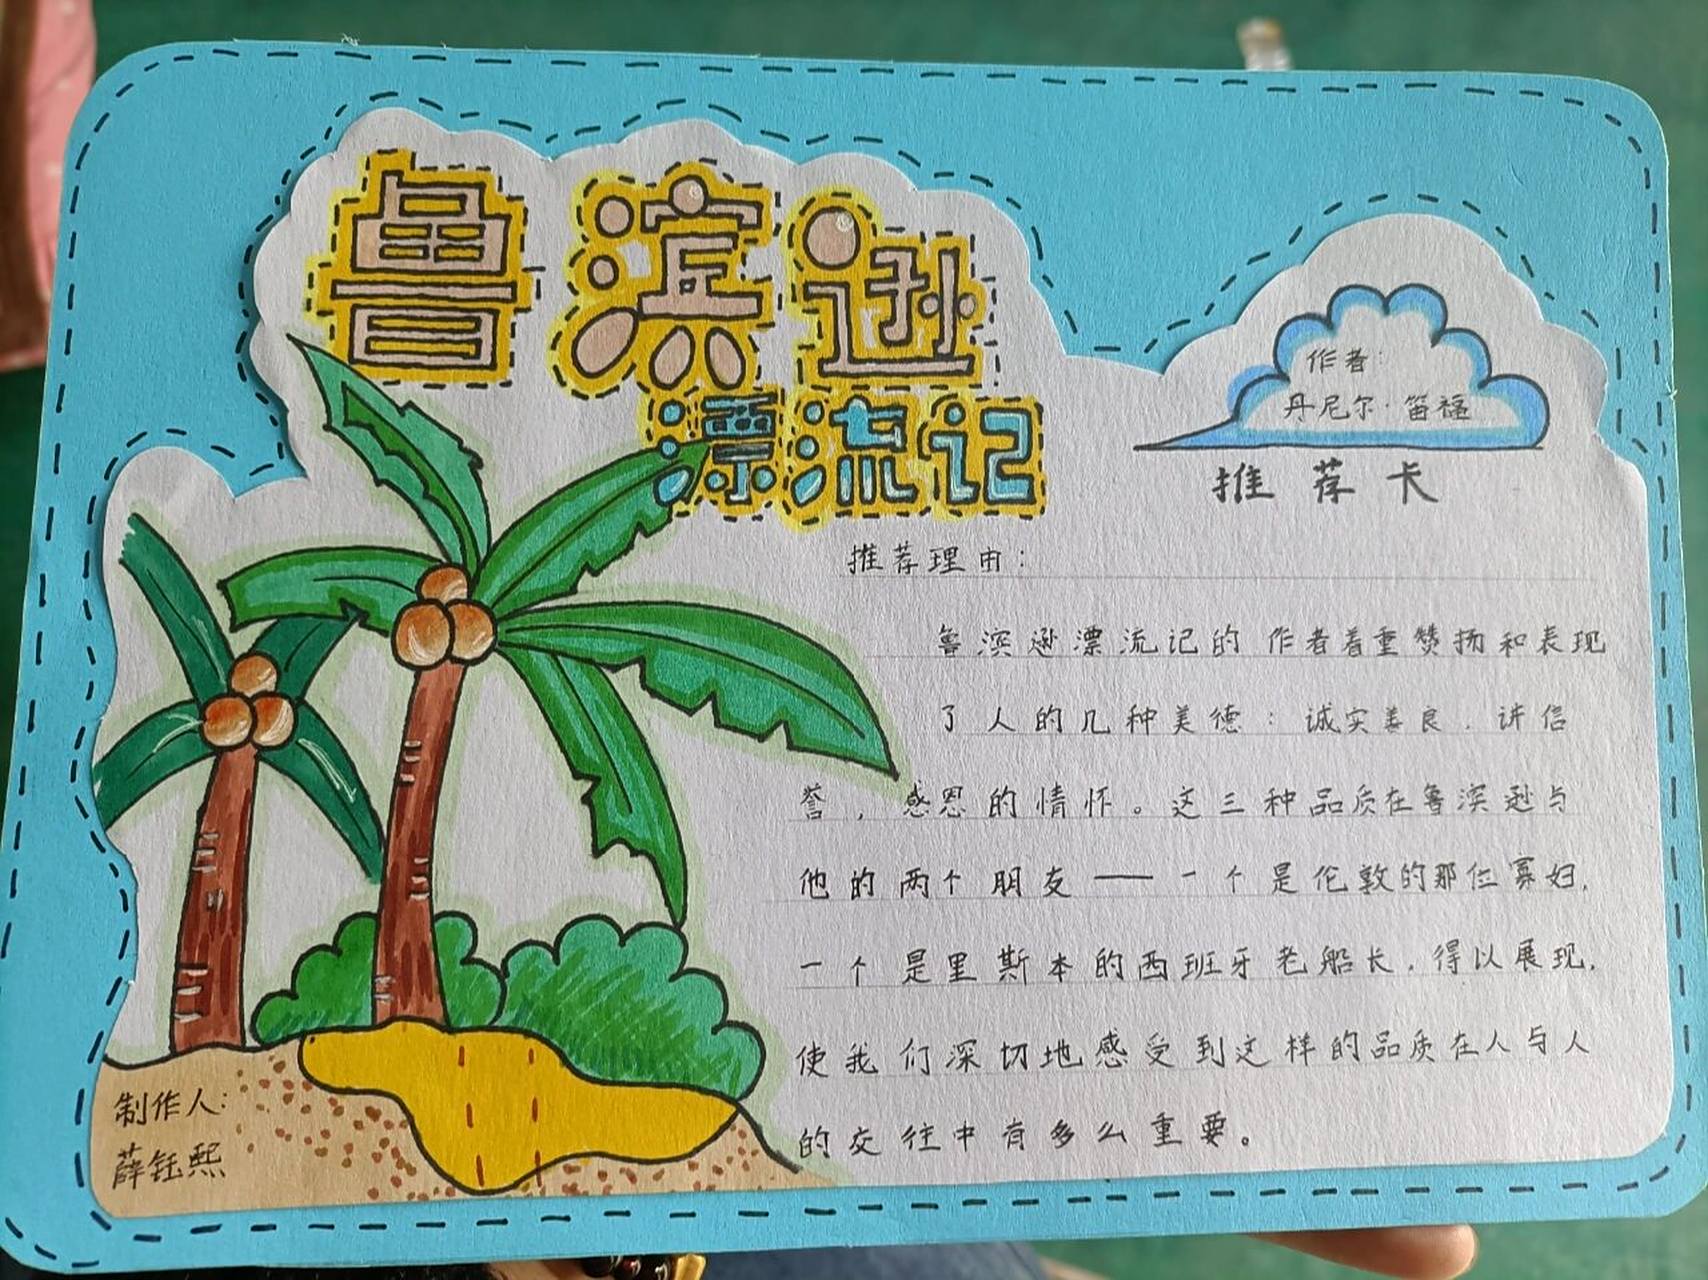 鲁滨逊
漂流记
作者：
丹尼尔·笛福
推荐卡
推荐理由：
鲁滨逊漂流记的作者着重赞扬和表现
了人的几种美德：诚实善良．讲信
誉，感恩的情怀。这三种品质在鲁滨逊与
他的两个朋友——一个是伦敦的那位寡妇，
一个是里斯本的西班牙老船长，得以展现，
使我们深切地感受到这样的品质在人与人
的交往中有多么重要。
制作人：
薛钰熙